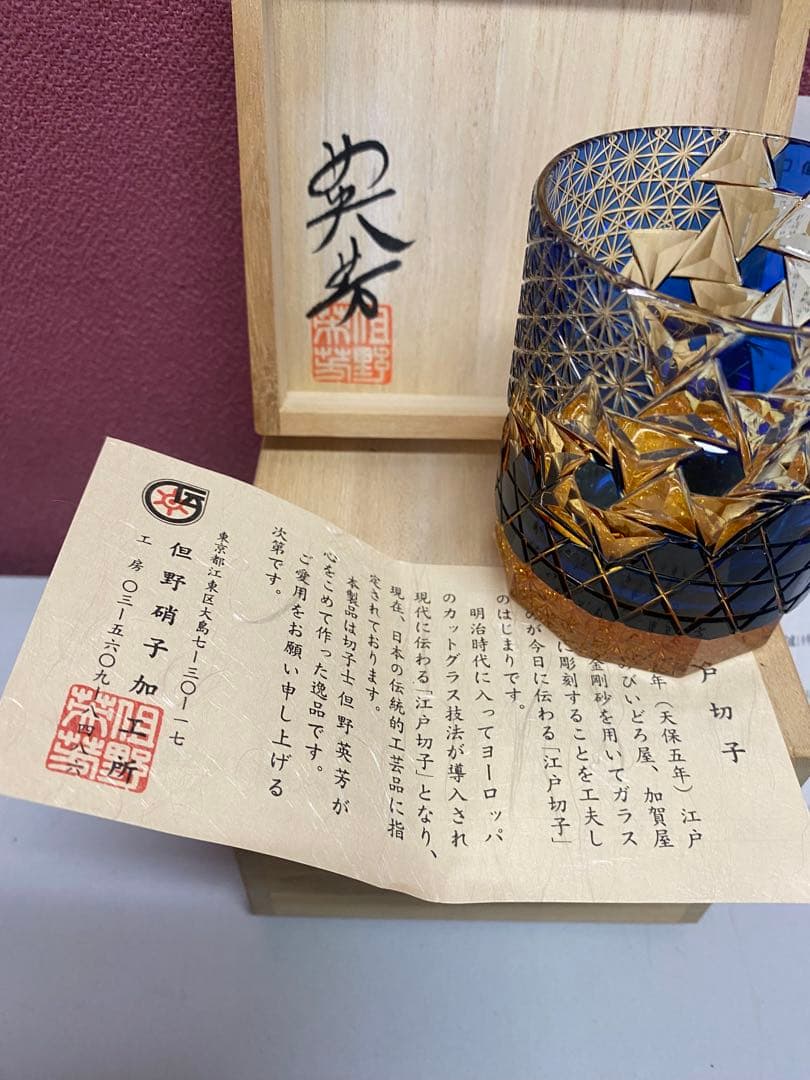 英芳
但野
英芳
戸切子
年（天保五年）江戸
のびいどろ屋、加賀屋
金剛砂を用いてガラス
に彫刻することを工夫し
のが今日に伝わる「江戸切子」
のはじまりです。
明治時代に入ってヨーロッパ
のカットグラス技法が導入され
現代に伝わる「江戸切子」となり、
現在、日本の伝統的工芸品に指
定されております。
本製品は切子士但野英芳が
心をこめて作った逸品です。
ご愛用をお願い申し上げる
次第です。
但野硝子加工所
東京都江東区大島七ー三〇ー一七
工房 〇三ー五六〇九ー八四八六
但野
英芳